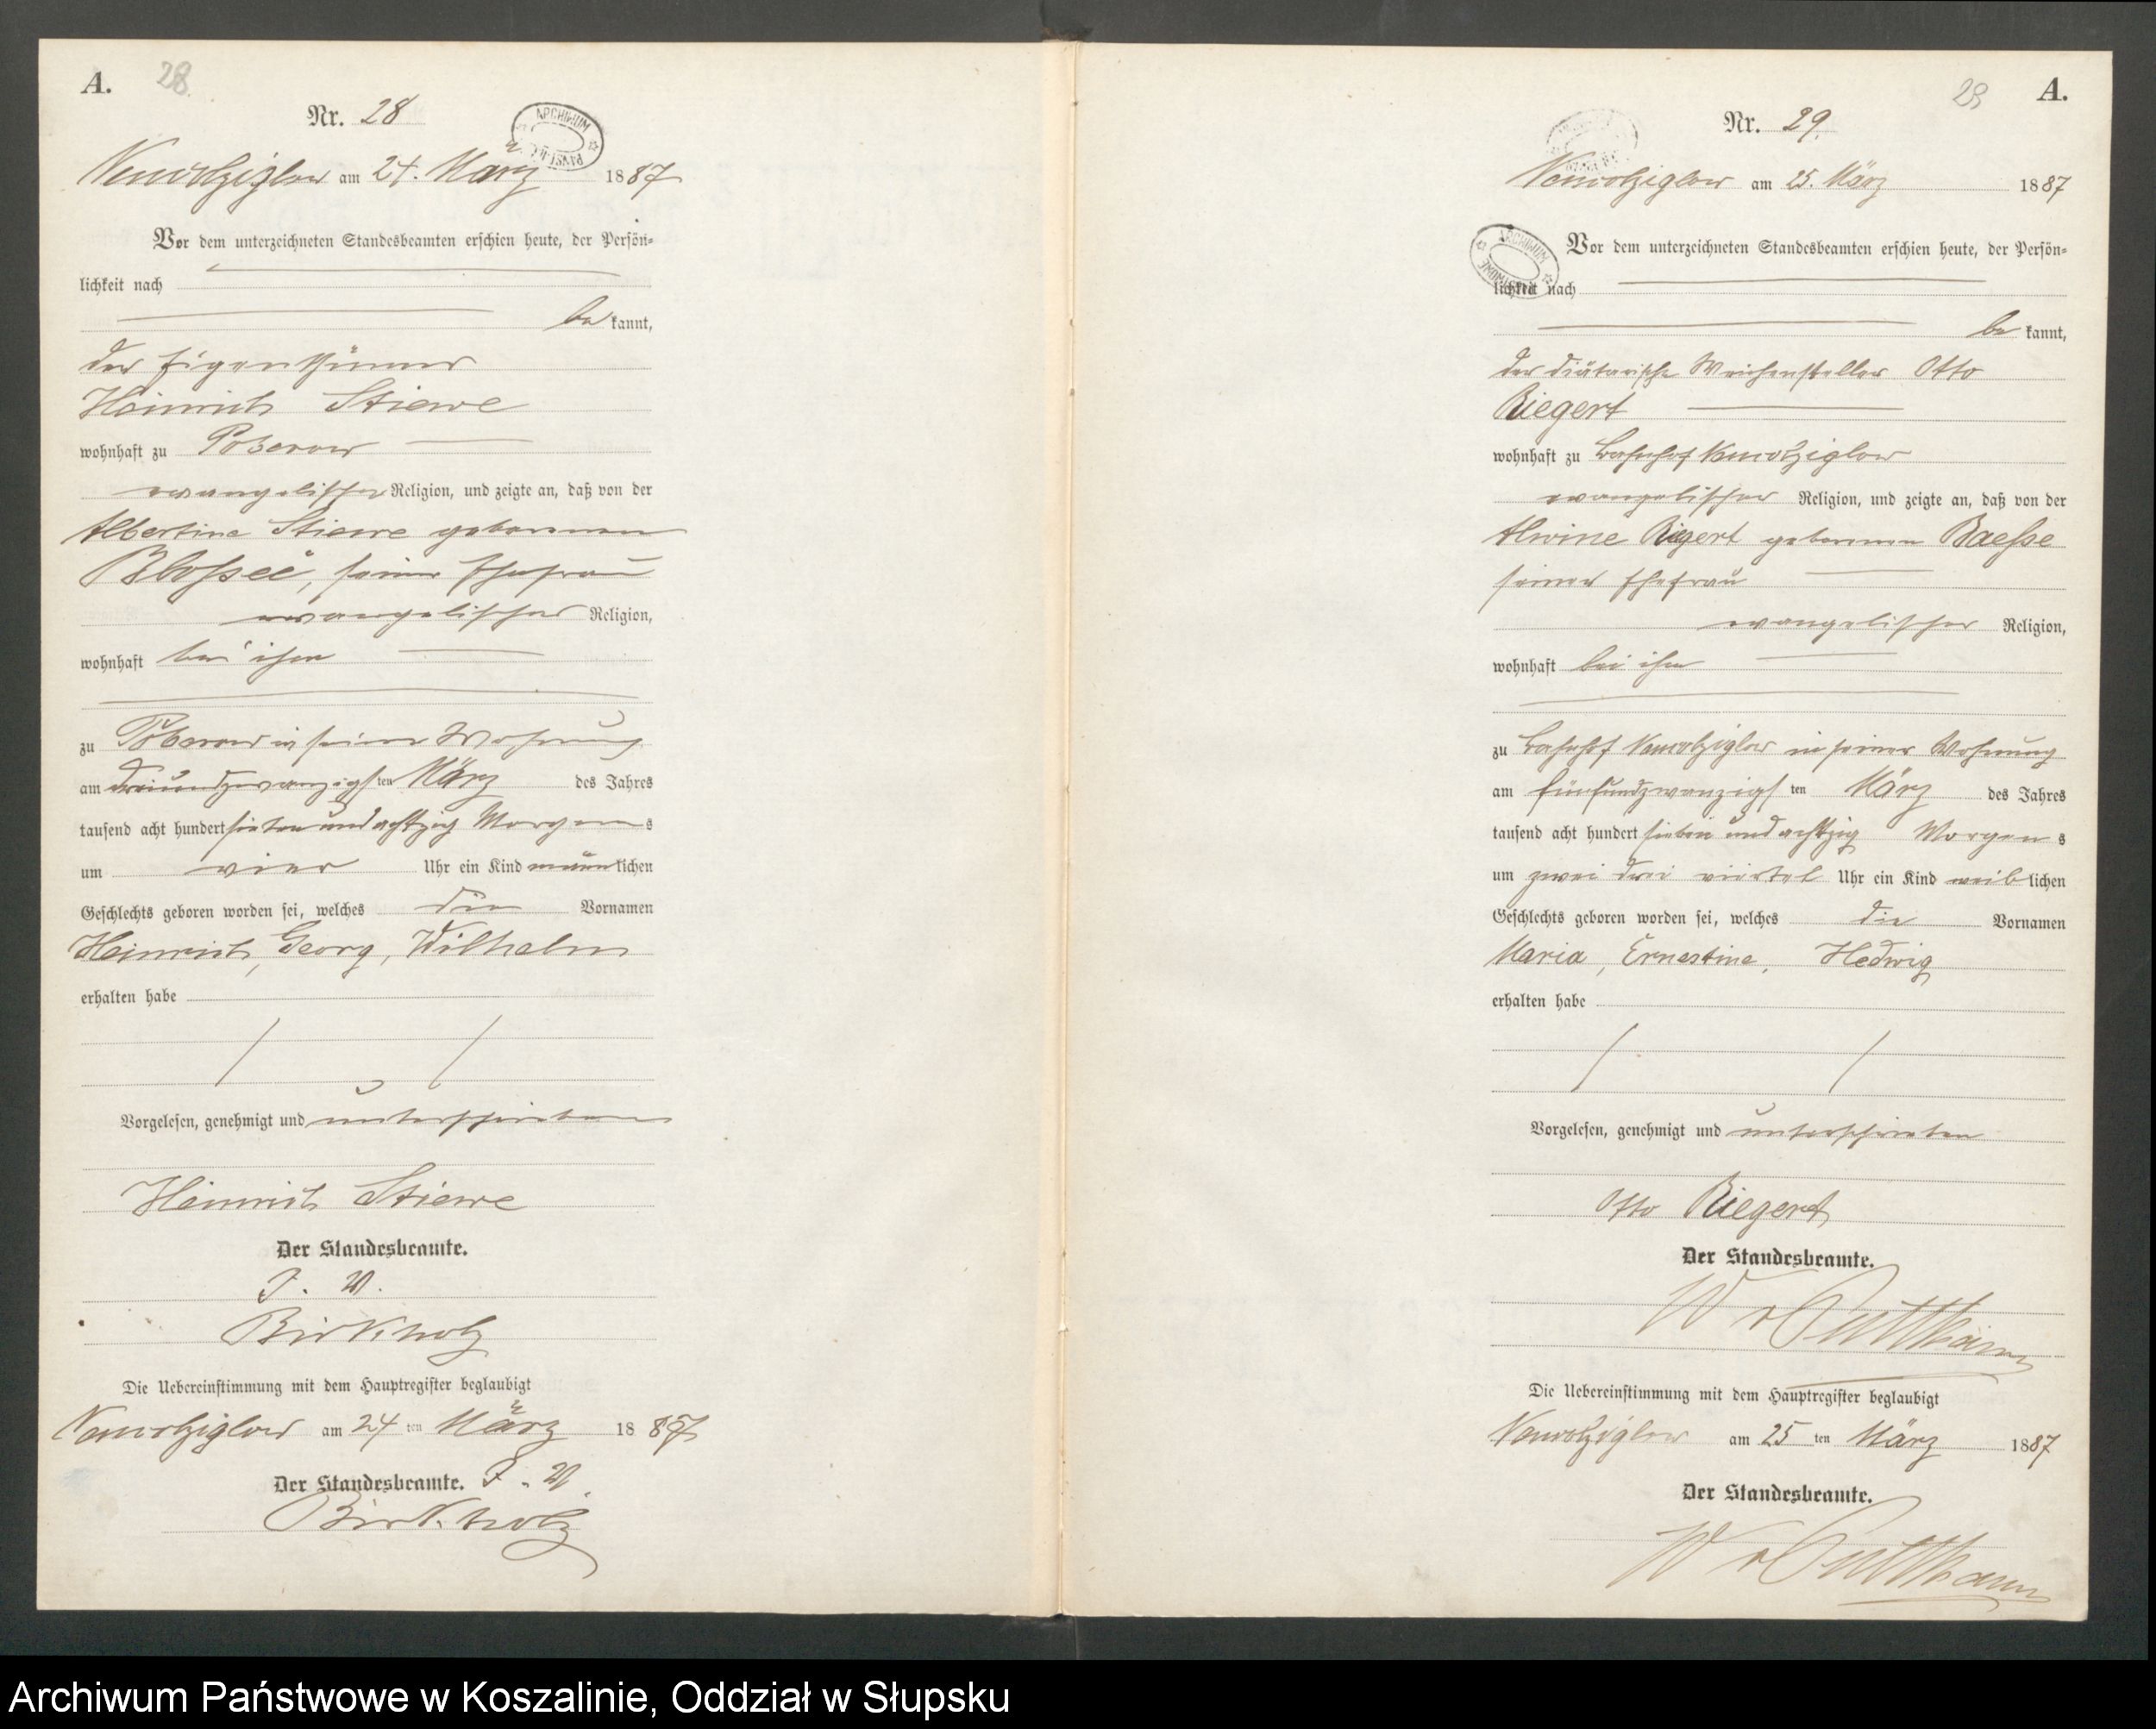 A.
28.
Nr. 28
ARCHIWUM
Nemitzglow am 24. März 1887
Vor dem unterzeichneten Standesbeamten erschien heute, der Persön-
lichkeit nach
be kannt,
der Eigenthümer
Heinrich Stiewe
wohnhaft zu Poberow
evangelischer Religion, und zeigte an, daß von der
Albertine Stiewe geborenen
Blossei, seiner Ehefrau
evangelischer Religion,
wohnhaft bei ihm
zu Poberow in seiner Wohnung
am dreiundzwanzigsten März des Jahres
tausend acht hundert sieben und achtzig Morgens
um vier Uhr ein Kind männlichen
Geschlechts geboren worden sei, welches die Vornamen
Heinrich, Georg, Wilhelm
erhalten habe
Vorgelesen, genehmigt und unterschrieben
Heinrich Stiewe
Der Standesbeamte.
I. V.
Birkholz
Die Uebereinstimmung mit dem Hauptregister beglaubigt
am 24 ten März 1887
Der Standesbeamte. I. V.
Birkholz
29
A.
Nr. 29.
am 25. März 1887
ARCHIWUM
Vor dem unterzeichneten Standesbeamten erschien heute, der Persön-
lichkeit nach
be kannt,
der diätarische Weichensteller Otto
Riegert
wohnhaft zu Bahnhof
evangelischer Religion, und zeigte an, daß von der
Alwine Riegert geborenen Baesse
seiner Ehefrau
evangelischer Religion,
wohnhaft bei ihm
zu Bahnhof in seiner Wohnung
am fünfundzwanzigsten März des Jahres
tausend acht hundert sieben und achtzig Morgens
um zwei drei viertel Uhr ein Kind weiblichen
Geschlechts geboren worden sei, welches die Vornamen
Maria, Ernestine, Hedwig
erhalten habe
Vorgelesen, genehmigt und unterschrieben
Otto Riegert
Der Standesbeamte.
W v Puttkamer
Die Uebereinstimmung mit dem Hauptregister beglaubigt
am 25 ten März 1887
Der Standesbeamte.
W v Puttkamer
Archiwum Państwowe w Koszalinie, Oddział w Słupsku